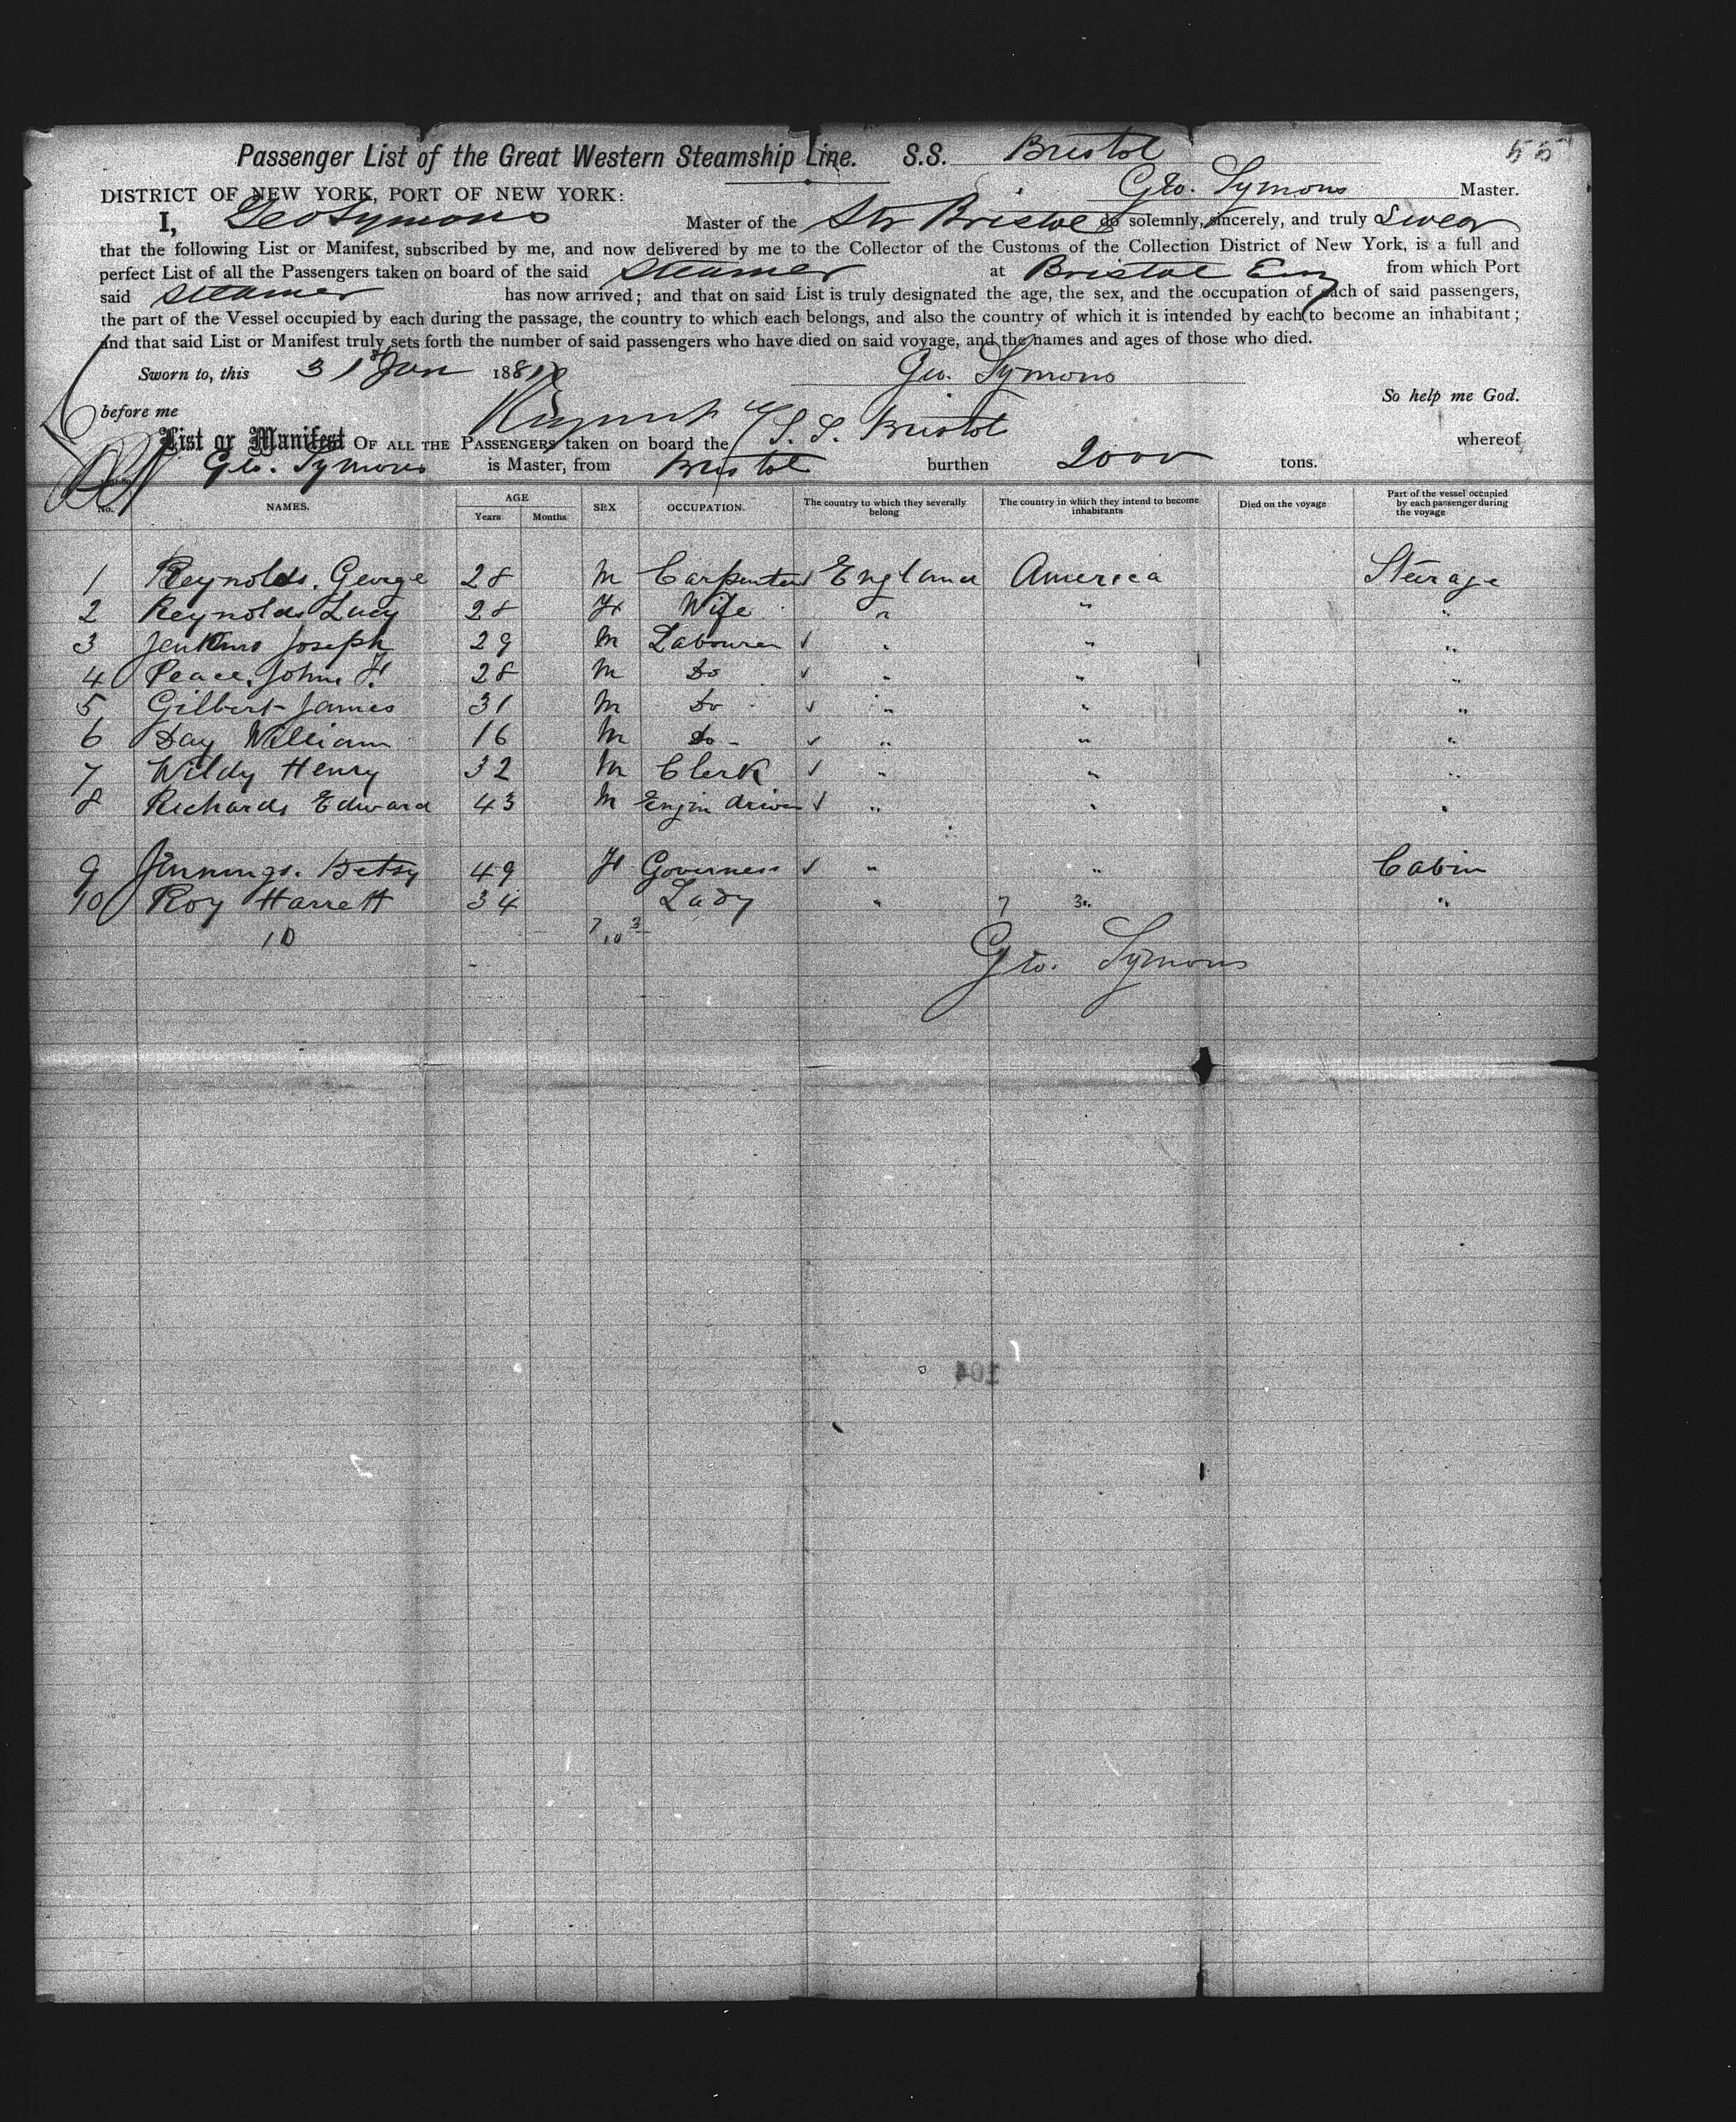 Passenger List of the Great Western Steamship Line. S.S. Bristol 55
DISTRICT OF NEW YORK, PORT OF NEW YORK: Geo. Symons Master.
I, Geo Symons Master of the Str Bristol do solemnly, sincerely, and truly Swear
that the following List or Manifest, subscribed by me, and now delivered by me to the Collector of the Customs of the Collection District of New York, is a full and
perfect List of all the Passengers taken on board of the said Steamer at Bristol Eng from which Port
said Steamer has now arrived; and that on said List is truly designated the age, the sex, and the occupation of each of said passengers,
the part of the Vessel occupied by each during the passage, the country to which each belongs, and also the country of which it is intended by each to become an inhabitant;
and that said List or Manifest truly sets forth the number of said passengers who have died on said voyage, and the names and ages of those who died.
Sworn to, this 31st Jan 188 Geo. Symons
So help me God.
before me
List or Manifest OF ALL THE PASSENGERS taken on board the S. S. Bristol whereof
Geo. Symons is Master, from Bristol burthen 2000 tons.
No. NAMES. AGE Years Months SEX OCCUPATION. The country to which they severally belong The country in which they intend to become inhabitants Died on the voyage Part of the vessel occupied by each passenger during the voyage
1 Reynolds, George 28 M Carpenter England America Steerage
2 Reynolds Lucy 28 F Wife " " "
3 Jenkins Joseph 29 M Labourer √ " " "
4 Peace, John F. 28 M Do √ " " "
5 Gilbert James 31 M Do √ " " "
6 Day William 16 M Do √ " " "
7 Wildy Henry 32 M Clerk √ " " "
8 Richards Edward 43 M Engin driver √ " " "
9 Jinnings. Betsy 49 F Governess √ " " Cabin
10 Roy Harrett 34 Lady " 7 3 " "
10 7 10 3
Geo. Symons
104